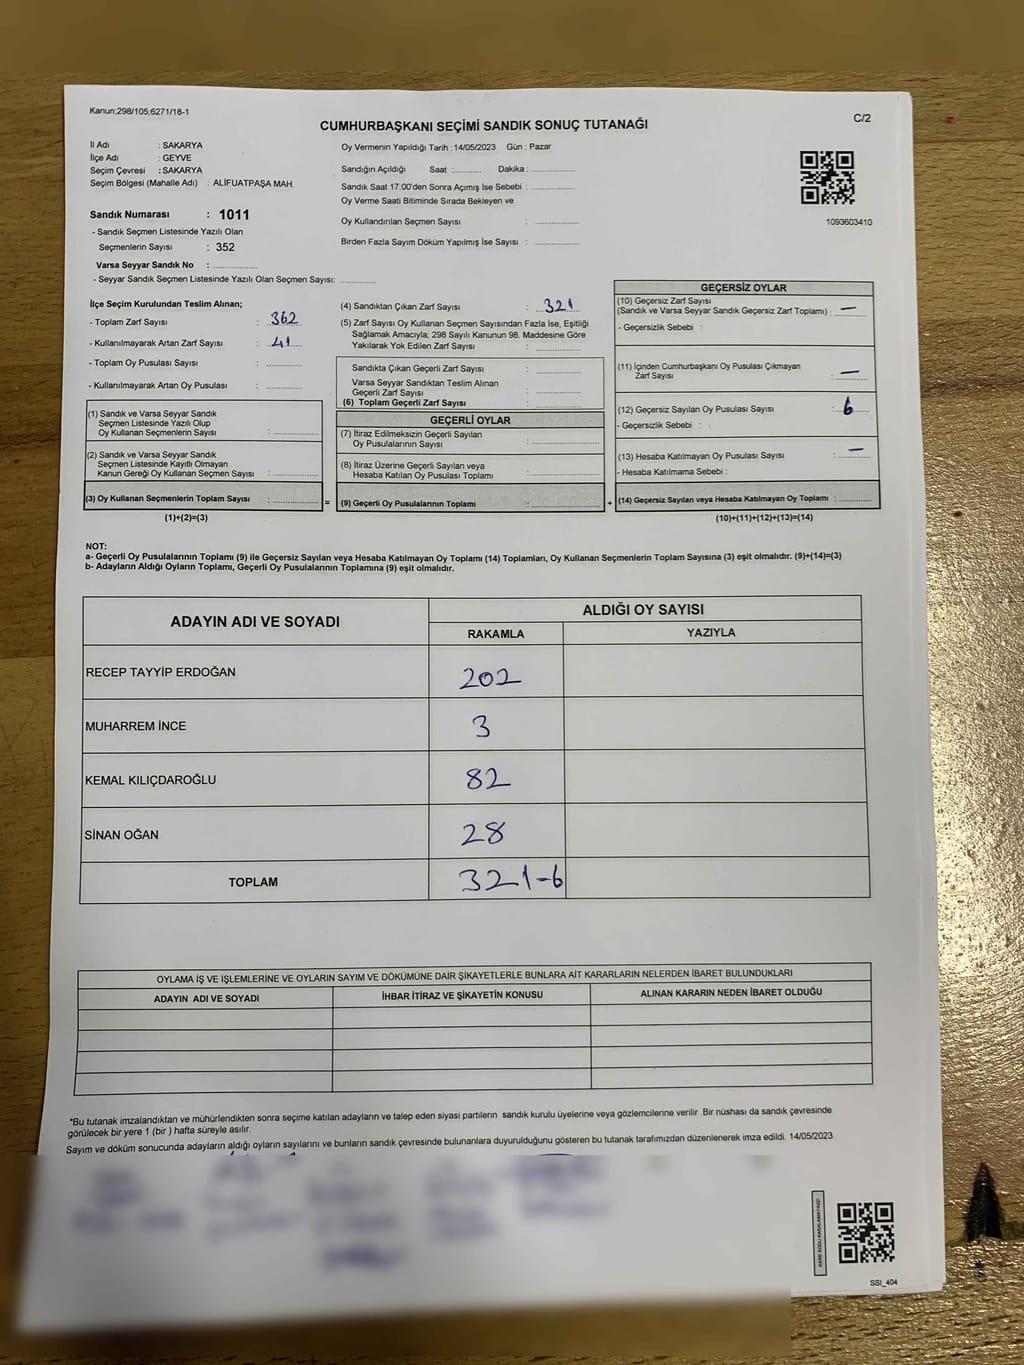 Kanun;298/105;6271/18-1
C/2
CUMHURBAŞKANI SEÇİMİ SANDIK SONUÇ TUTANAĞI
İl Adı : SAKARYA
İlçe Adı : GEYVE
Seçim Çevresi : SAKARYA
Seçim Bölgesi (Mahalle Adı) : ALİFUATPAŞA MAH.
Sandık Numarası : 1011
- Sandık Seçmen Listesinde Yazılı Olan
Seçmenlerin Sayısı : 352
Varsa Seyyar Sandık No : ..............
- Seyyar Sandık Seçmen Listesinde Yazılı Olan Seçmen Sayısı: ..............
Oy Vermenin Yapıldığı Tarih : 14/05/2023 Gün : Pazar
Sandığın Açıldığı Saat :.............. Dakika : ..............
Sandık Saat 17.00'den Sonra Açımış İse Sebebi : ..............
Oy Verme Saati Bitiminde Sırada Bekleyen ve
Oy Kullandırılan Seçmen Sayısı : ..............
Birden Fazla Sayım Döküm Yapılmış İse Sayısı : ..............
1093603410
İlçe Seçim Kurulundan Teslim Alınan;
- Toplam Zarf Sayısı : 362
- Kullanılmayarak Artan Zarf Sayısı : 41
- Toplam Oy Pusulası Sayısı : ..............
- Kullanılmayarak Artan Oy Pusulası : ..............
(1) Sandık ve Varsa Seyyar Sandık
Seçmen Listesinde Yazılı Olup
Oy Kullanan Seçmenlerin Sayısı : ..............
(2) Sandık ve Varsa Seyyar Sandık
Seçmen Listesinde Kayıtlı Olmayan
Kanun Gereği Oy Kullanan Seçmen Sayısı : ..............
(3) Oy Kullanan Seçmenlerin Toplam Sayısı : ..............
(1)+(2)=(3)
(4) Sandıktan Çıkan Zarf Sayısı : 321
(5) Zarf Sayısı Oy Kullanan Seçmen Sayısından Fazla İse, Eşitliği
Sağlamak Amacıyla; 298 Sayılı Kanunun 98. Maddesine Göre
Yakılarak Yok Edilen Zarf Sayısı : ..............
Sandıkta Çıkan Geçerli Zarf Sayısı : ..............
Varsa Seyyar Sandıktan Teslim Alınan
Geçerli Zarf Sayısı : ..............
(6) Toplam Geçerli Zarf Sayısı : ..............
GEÇERLİ OYLAR
(7) İtiraz Edilmeksizin Geçerli Sayılan
Oy Pusulalarının Sayısı : ..............
(8) İtiraz Üzerine Geçerli Sayılan veya
Hesaba Katılan Oy Pusulası Toplamı : ..............
= (9) Geçerli Oy Pusulalarının Toplamı : ..............
GEÇERSİZ OYLAR
(10) Geçersiz Zarf Sayısı
(Sandık ve Varsa Seyyar Sandık Geçersiz Zarf Toplamı) : —
- Geçersizlik Sebebi :
(11) İçinden Cumhurbaşkanı Oy Pusulası Çıkmayan
Zarf Sayısı : —
(12) Geçersiz Sayılan Oy Pusulası Sayısı : 6
- Geçersizlik Sebebi :
(13) Hesaba Katılmayan Oy Pusulası Sayısı : —
- Hesaba Katılmama Sebebi :
+ (14) Geçersiz Sayılan veya Hesaba Katılmayan Oy Toplamı : ..............
(10)+(11)+(12)+(13)=(14)
NOT:
a- Geçerli Oy Pusulalarının Toplamı (9) ile Geçersiz Sayılan veya Hesaba Katılmayan Oy Toplamı (14) Toplamları, Oy Kullanan Seçmenlerin Toplam Sayısına (3) eşit olmalıdır. (9)+(14)=(3)
b- Adayların Aldığı Oyların Toplamı, Geçerli Oy Pusulalarının Toplamına (9) eşit olmalıdır.
ADAYIN ADI VE SOYADI
ALDIĞI OY SAYISI
RAKAMLA YAZIYLA
RECEP TAYYİP ERDOĞAN 202
MUHARREM İNCE 3
KEMAL KILIÇDAROĞLU 82
SİNAN OĞAN 28
TOPLAM 321-6
OYLAMA İŞ VE İŞLEMLERİNE VE OYLARIN SAYIM VE DÖKÜMÜNE DAİR ŞİKAYETLERLE BUNLARA AİT KARARLARIN NELERDEN İBARET BULUNDUKLARI
ADAYIN ADI VE SOYADI İHBAR İTİRAZ VE ŞİKAYETİN KONUSU ALINAN KARARIN NEDEN İBARET OLDUĞU
*Bu tutanak imzalandıktan ve mühürlendikten sonra seçime katılan adayların ve talep eden siyasi partilerin sandık kurulu üyelerine veya gözlemcilerine verilir .Bir nüshası da sandık çevresinde
görülecek bir yere 1 (bir ) hafta süreyle asılır.
Sayım ve döküm sonucunda adayların aldığı oyların sayılarını ve bunların sandık çevresinde bulunanlara duyurulduğunu gösteren bu tutanak tarafımızdan düzenlenerek imza edildi. 14/05/2023
SSI_404